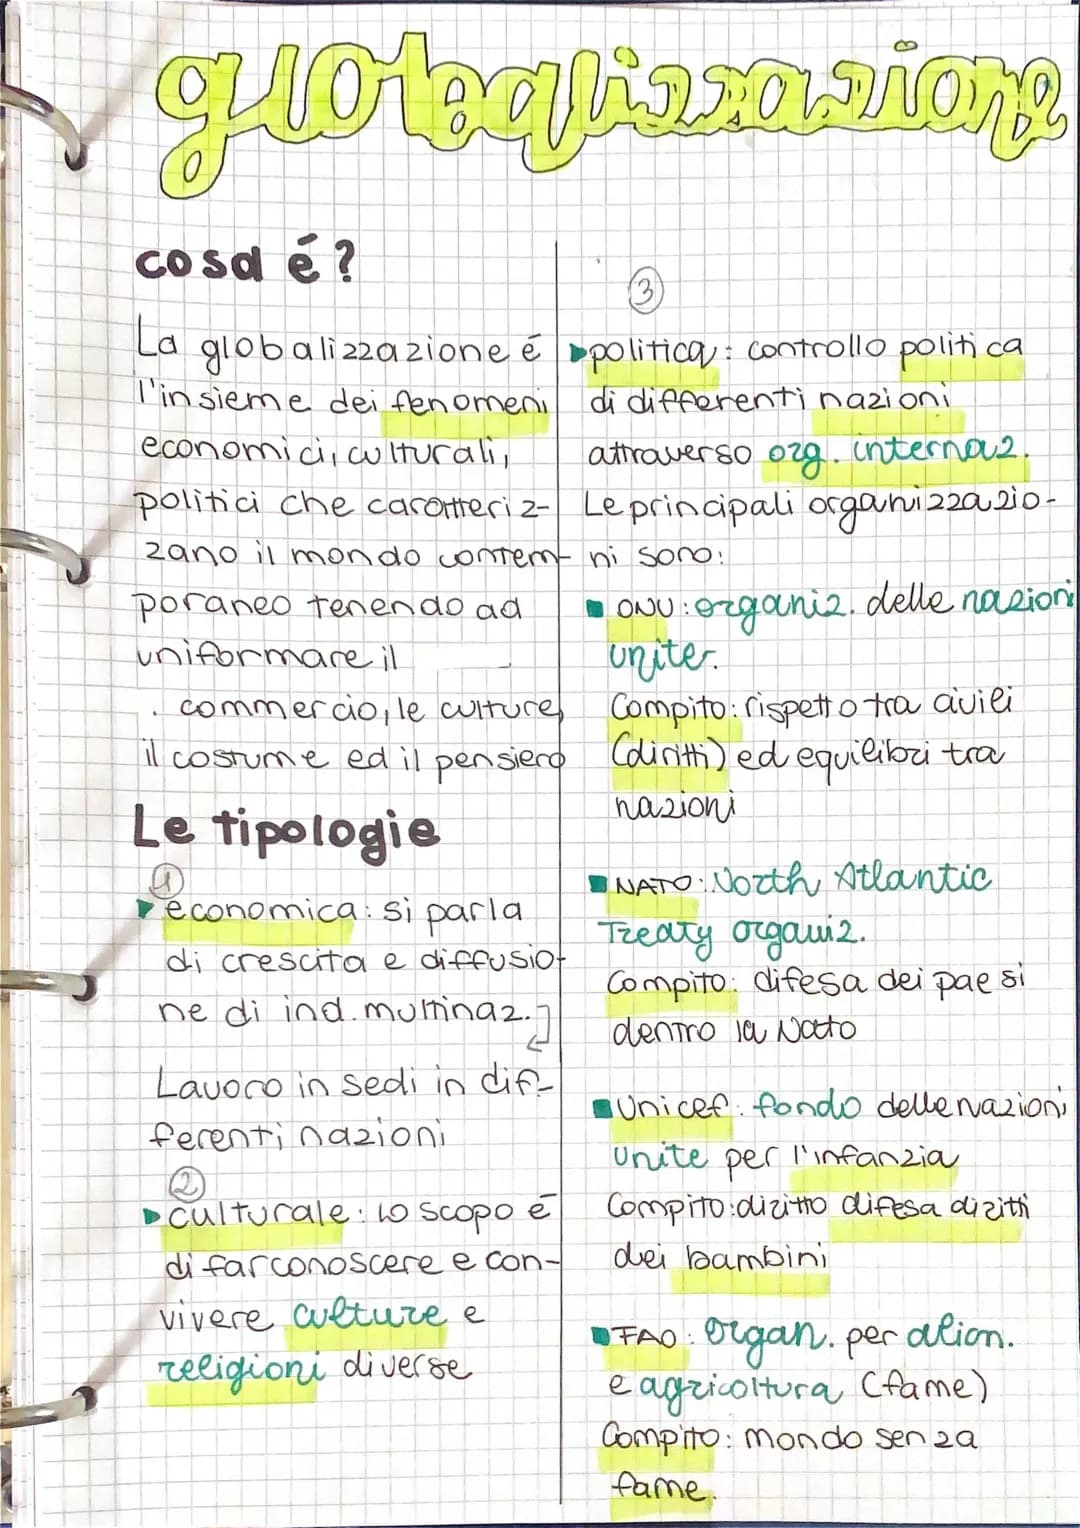 globalizzazione
cosa é?
La globalizzazione é
l'insieme dei fenomeni
economici, culturali,
politici che caratteriz-
zano il mondo contem-
poraneo tenendo ad
uniformare il
commercio, le culture,
il costume ed il pensiero
Le tipologie
1
economica: si parla
di crescita e diffusio-
ne di ind. multinaz.
Lavoro in sedi in dif-
ferenti nazioni
2
culturale: lo scopo é
di far conoscere e con-
vivere culture e
religioni diverse
3
politica: controllo politica
di differenti nazioni
attraverso org. internaz.
Le principali organizzazio-
ni sono:
ONU: organiz. delle nazioni
unite.
Compito: rispetto tra civili
(diritti) ed equilibri tra
nazioni
NATO: North Atlantic
Treaty organiz.
Compito: difesa dei paesi
dentro la Nato
Unicef: fondo delle nazioni
unite per l'infanzia
Compito: diritto difesa diritti
dei bambini
FAO: Organ. per alion.
e agricoltura (fame)
Compito: mondo senza
fame.